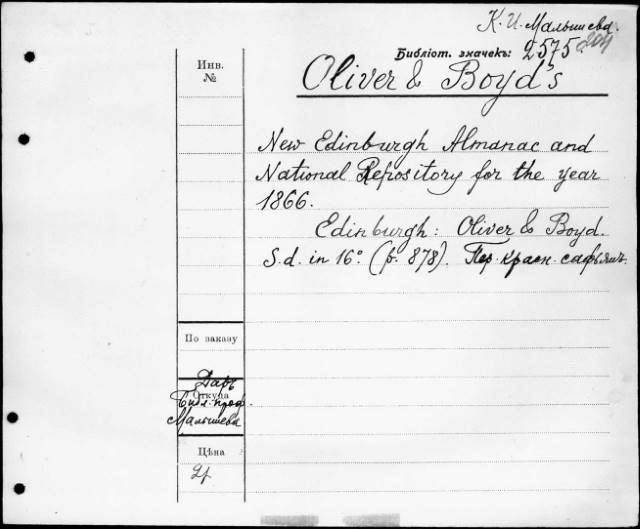 К. И. Малышева.
Бібліот. значекъ: 2575 204
Инв.
№
Oliver & Boyd's
New Edinburgh Almanac and
National Repository for the year
1866.
Edinburgh: Oliver & Boyd.
S.d. in 16°. (p. 878). Пер. красн. сафьянъ.
По заказу
Даръ
Откуда
Библ. проф.
Малышева
Цѣна